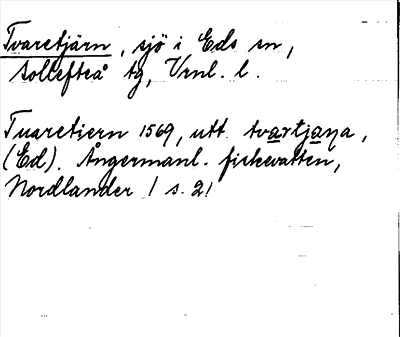 Tvaretjärn, sjö i Eds sn,
Sollefteå tg, Vrnl. l.
Tuaretiern 1569, utt. tvartjaṇa,
(Ed). Ångermanl. fiskevatten,
Nordlander / s. 21